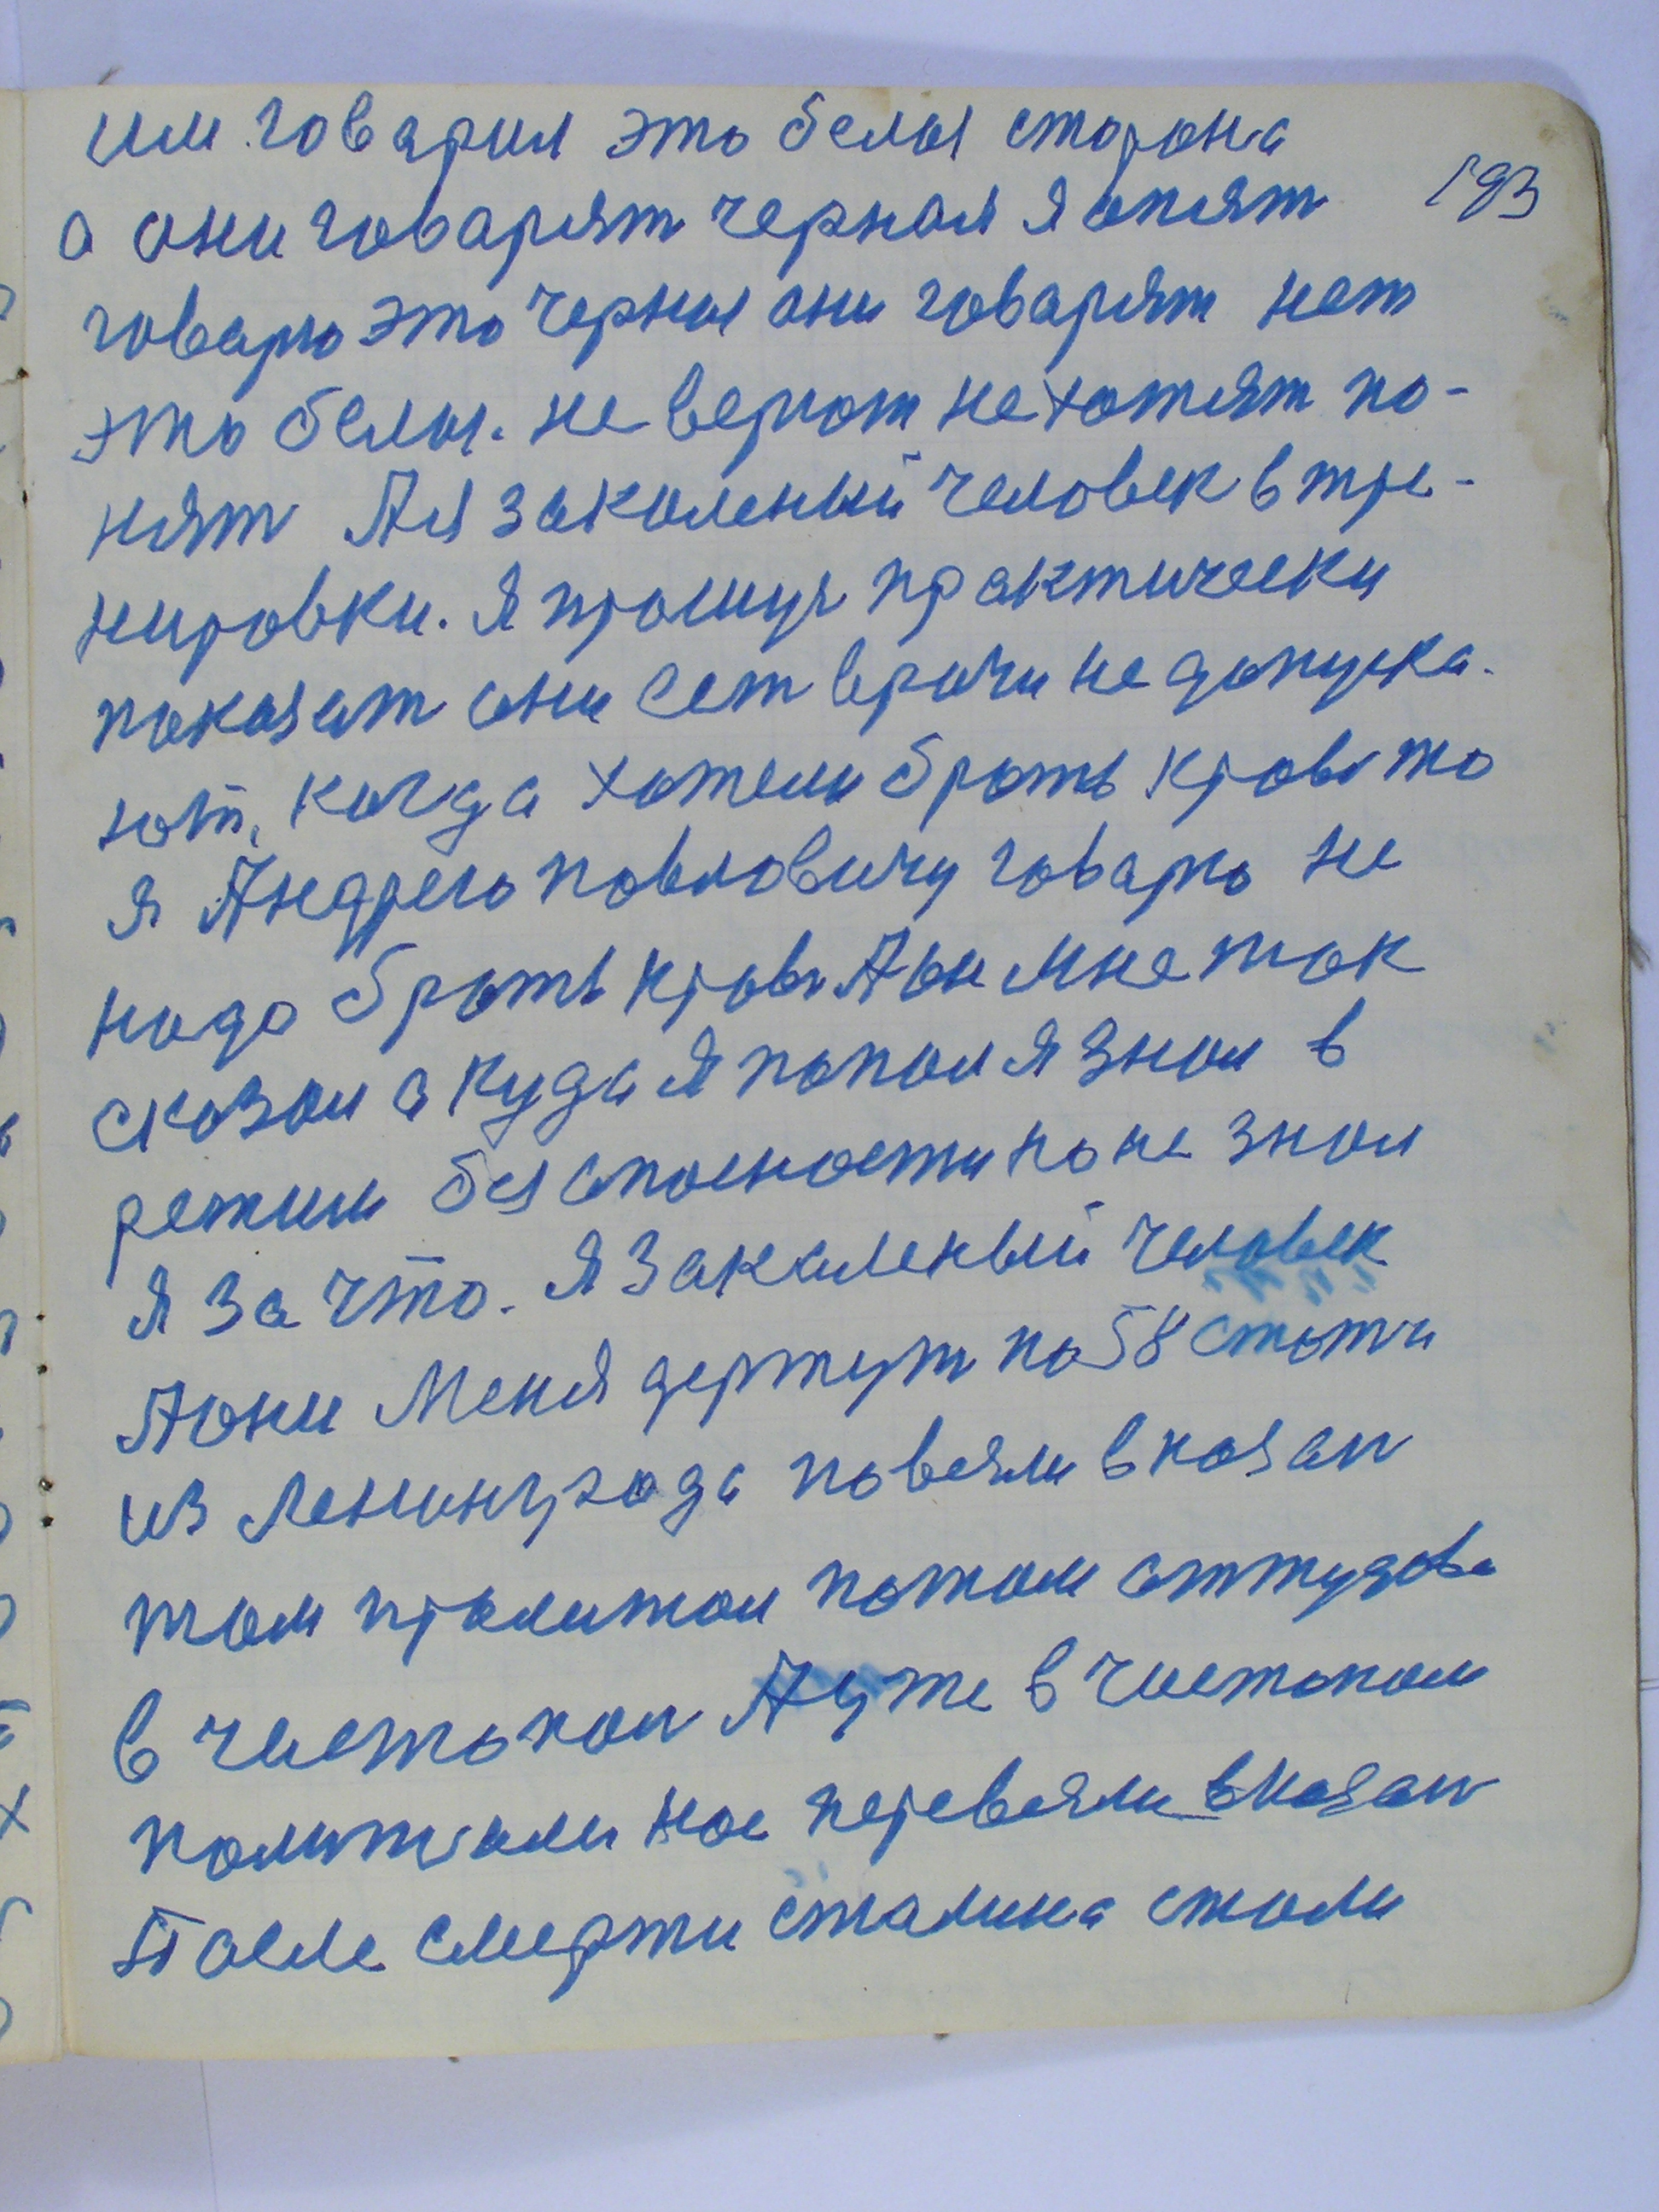 им говарил это белая сторона
193
а они говарят черная я опят
говарю это черная они говарят нет
это белая. не верют не хотят по-
нят А я закаленый человек в тре-
нировки. Я прошуся практически
показат они сет врачи не допуска-
ют. когда хотели брать кровь то
я Андрею павловичу говарю не
надо брать кровь А он мне так
сказал а куда я попал я знал в
режим без спосности но не знал
я за что. Я закаленый человек
А они меня держут по 58 статьи
из Ленинграда повезли в казан
там пролижал потом оттудова
в чистопол А уже в чистополи
полижали нас перевезли в казан
После смерти сталина стали